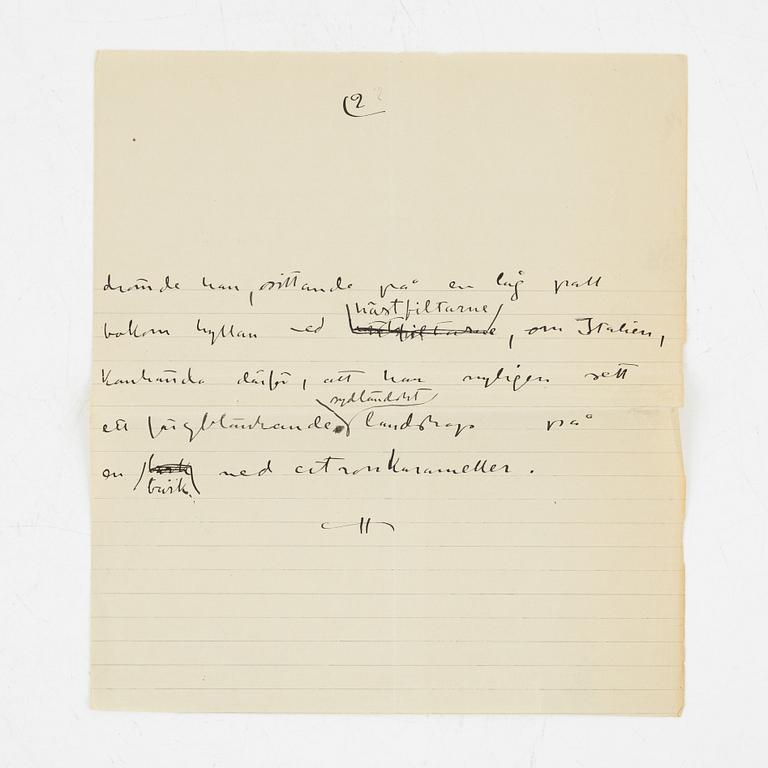 (2
drömde han, sittande på en låg pall
hästfiltarne
bakom hyllan med , om Italien,
kanhända därför, att han nyligen sett
sydländskt
ett färgblänkande landskap på
en med citronkarameller.
burk